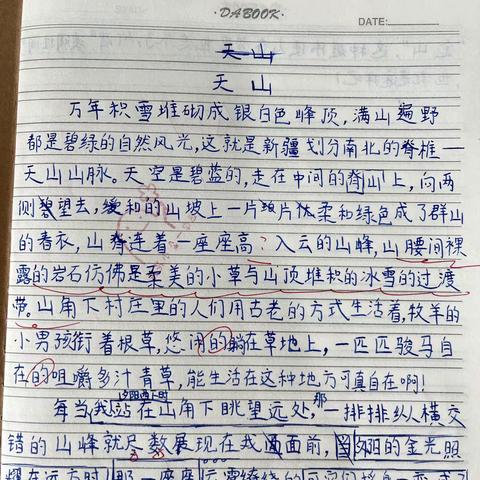 ·DABOOK·
DATE:
天山
天山
万年积雪堆砌成银白色峰顶,满山遍野
都是碧绿的自然风光,这就是新疆划分南北的脊椎一
天山山脉。天空是碧蓝的,走在中间的脊山上,向两
侧望去,缓和的山坡上一片片柔和绿色成了群山
的春衣,山脊连着一座座高?入云的山峰,山腰间裸
露的岩石仿佛是柔美的小草与山顶堆积的冰雪的过渡
带。山角下村庄里的人们用古老的方式生活着,牧羊的
小男孩衔着根草,悠闲的躺在草地上,一匹匹骏马自
在的咀嚼多汁青草,能生活在这种地方可真自在啊!
夕阳西下时
每当我站在山角下眺望远处,那一排排纵横交
错的山峰就尽数展现在我面前,当夕阳的金光照
耀在远方时那一座座